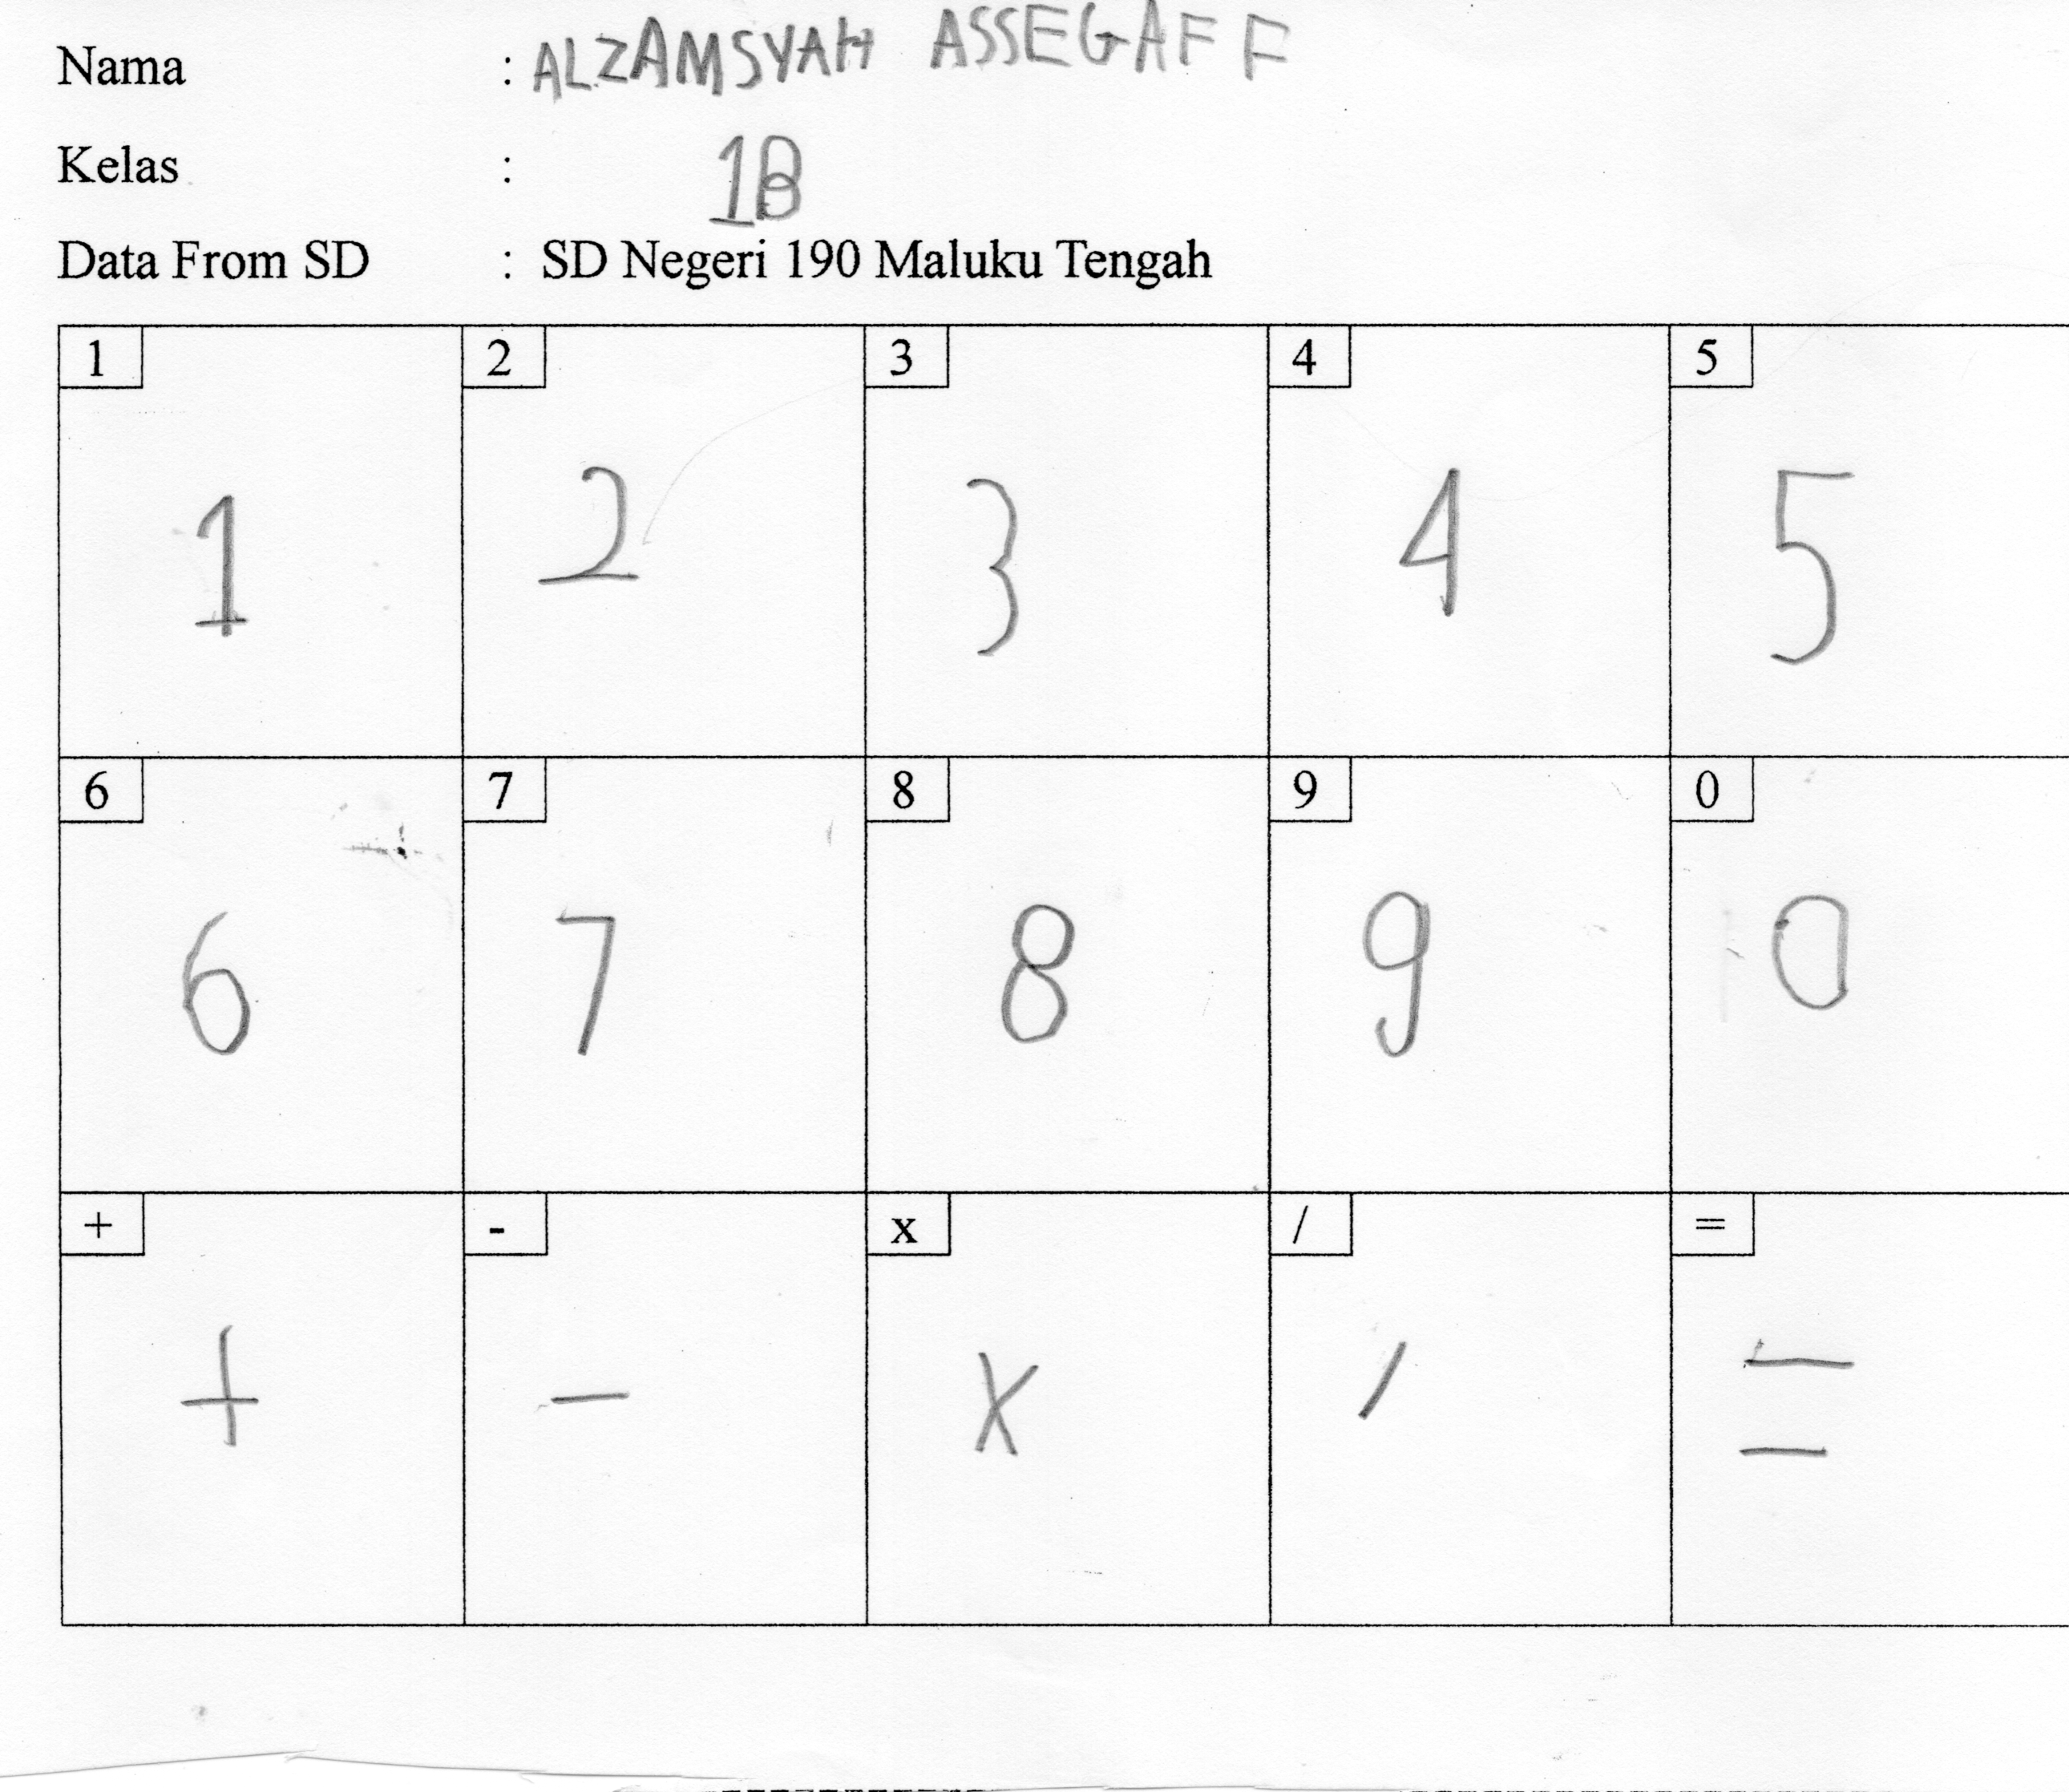 Nama : ALZAMSYAH ASSEGAFF
Kelas : 1B
Data From SD : SD Negeri 190 Maluku Tengah
1 2 3 4 5
1 2 3 4 5
6 7 8 9 0
6 7 8 9 0
+ - x / =
+ - x / =